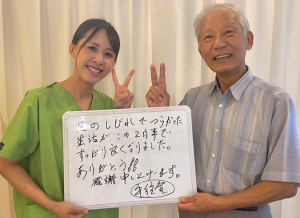 足のしびれでつらかった
生活がこの2月半で
すっかり良くなりました。
ありがとう!!
感謝申し上げます。